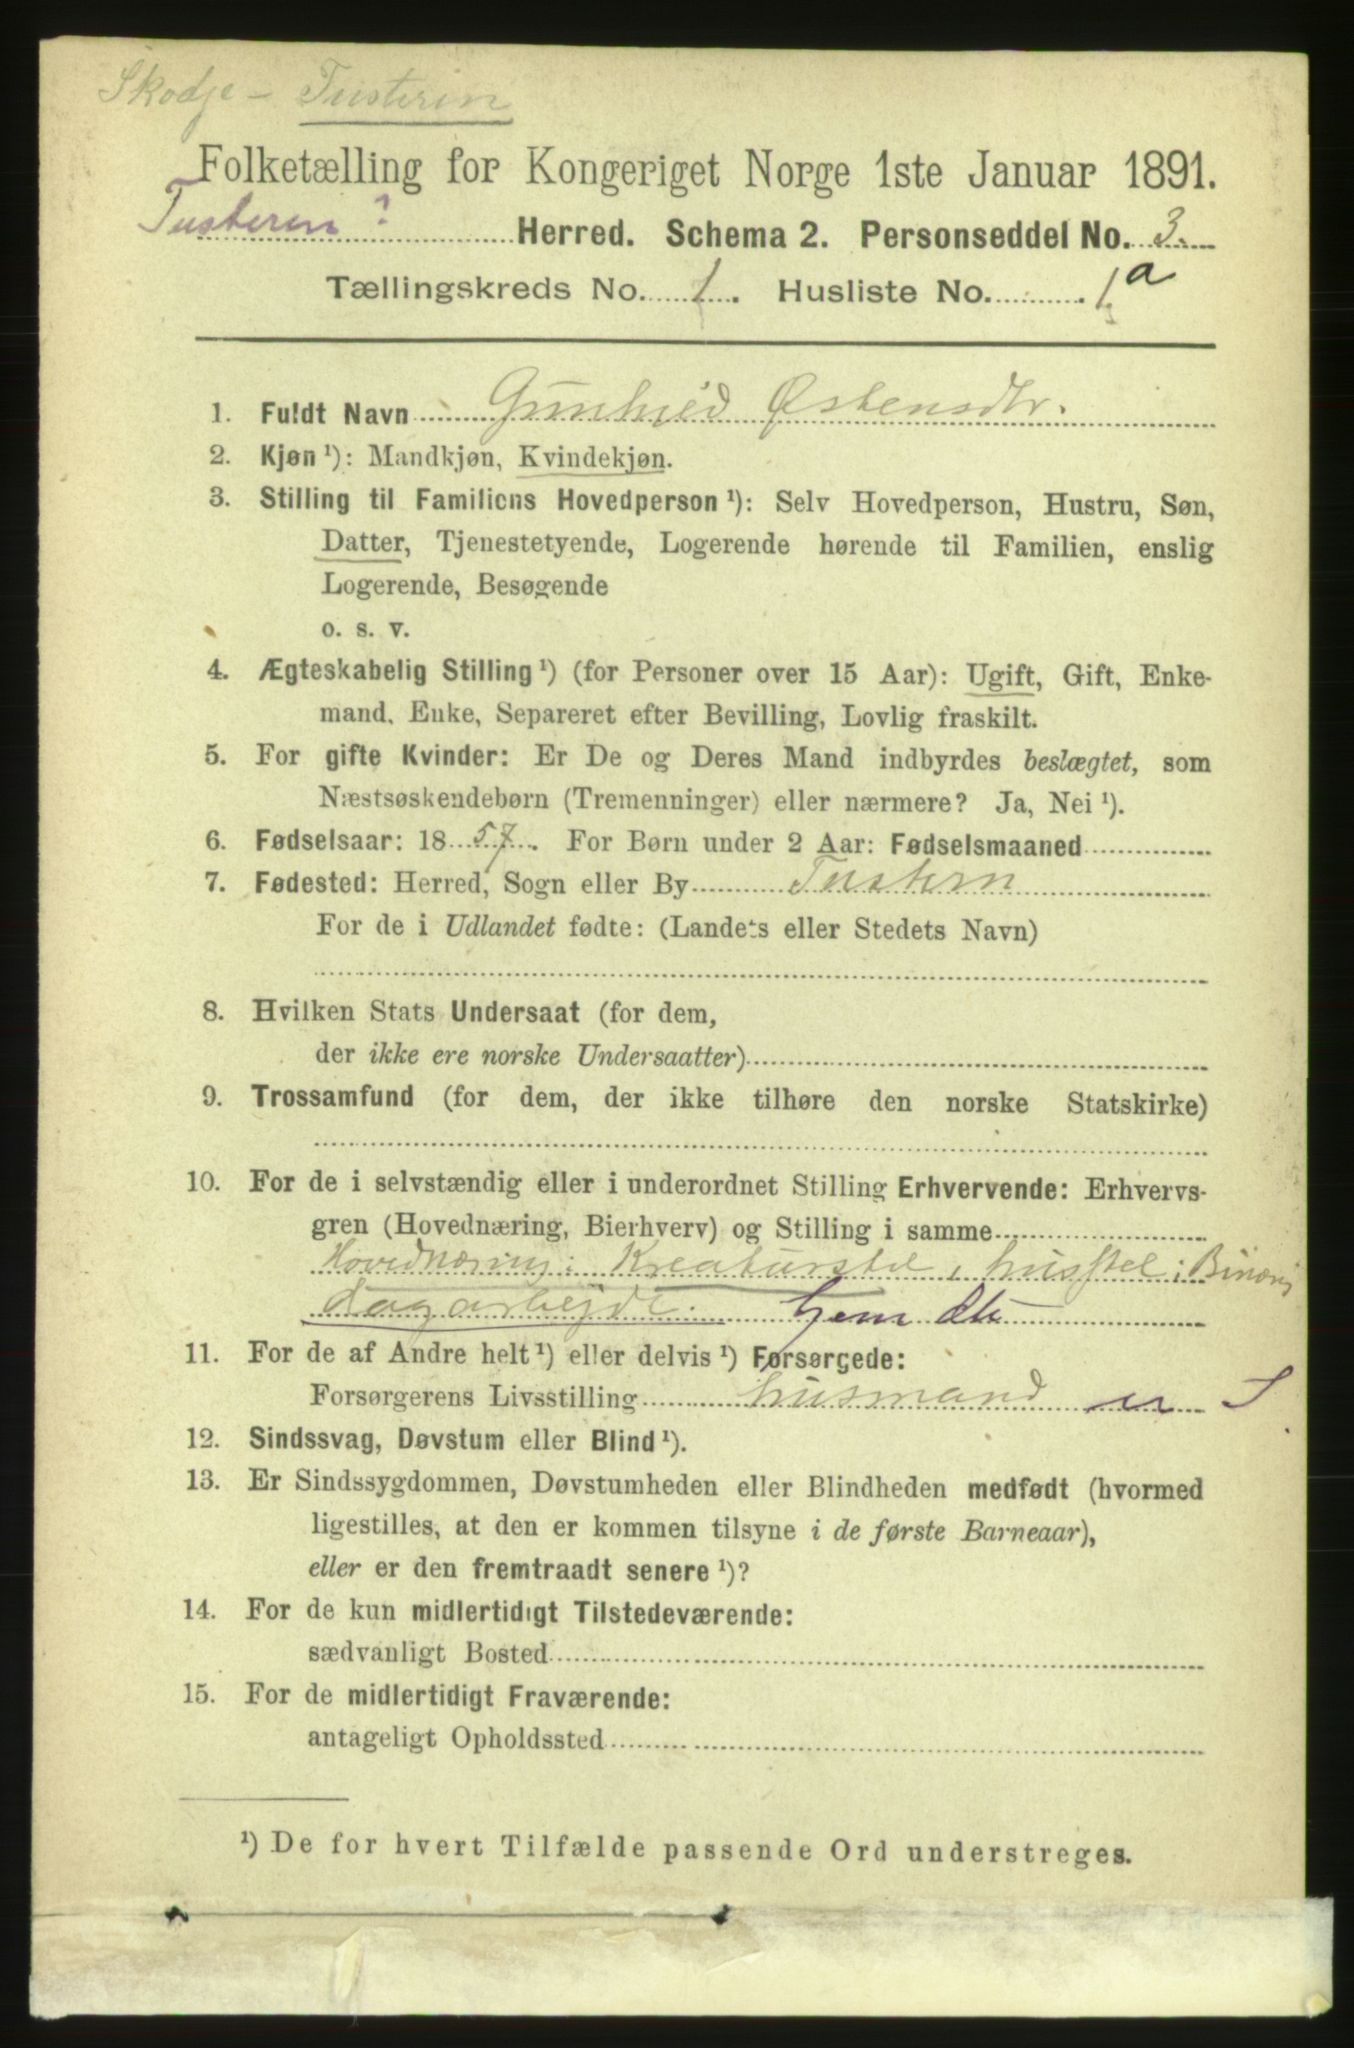 Skodje – Tusteren
Folketælling for Kongeriget Norge 1ste Januar 1891.
Tusteren ? Herred. Schema 2. Personseddel No. 3.
Tællingskreds No. 1. Husliste No. 1a
1. Fuldt Navn Gunhild Østensdtr.
2. Kjøn ¹): Mandkjøn, Kvindekjøn.
3. Stilling til Familiens Hovedperson ¹): Selv Hovedperson, Hustru, Søn,
Datter, Tjenestetyende, Logerende hørende til Familien, enslig
Logerende, Besøgende
o. s. v.
4. Ægteskabelig Stilling ¹) (for Personer over 15 Aar): Ugift, Gift, Enke-
mand, Enke, Separeret efter Bevilling, Lovlig fraskilt.
5. For gifte Kvinder: Er De og Deres Mand indbyrdes beslægtet, som
Næstsøskendebørn (Tremenninger) eller nærmere? Ja, Nei ¹).
6. Fødselsaar: 1857. For Børn under 2 Aar: Fødselsmaaned
7. Fødested: Herred, Sogn eller By Tustern
For de i Udlandet fødte: (Landets eller Stedets Navn)
8. Hvilken Stats Undersaat (for dem,
der ikke ere norske Undersaatter)
9. Trossamfund (for dem, der ikke tilhøre den norske Statskirke)
10. For de i selvstændig eller i underordnet Stilling Erhvervende: Erhvervs-
gren (Hovednæring, Bierhverv) og Stilling i samme
Hovednæring: Kreaturstel, husstel; Binæri
dagarbejde. hjem dtr
11. For de af Andre helt ¹) eller delvis ¹) Forsørgede:
Forsørgerens Livsstilling husmand u S
12. Sindssvag, Døvstum eller Blind ¹).
13. Er Sindssygdommen, Døvstumheden eller Blindheden medfødt (hvormed
ligestilles, at den er kommen tilsyne i de første Barneaar),
eller er den fremtraadt senere ¹)?
14. For de kun midlertidigt Tilstedeværende:
sædvanligt Bosted
15. For de midlertidigt Fraværende:
antageligt Opholdssted
¹) De for hvert Tilfælde passende Ord understreges.